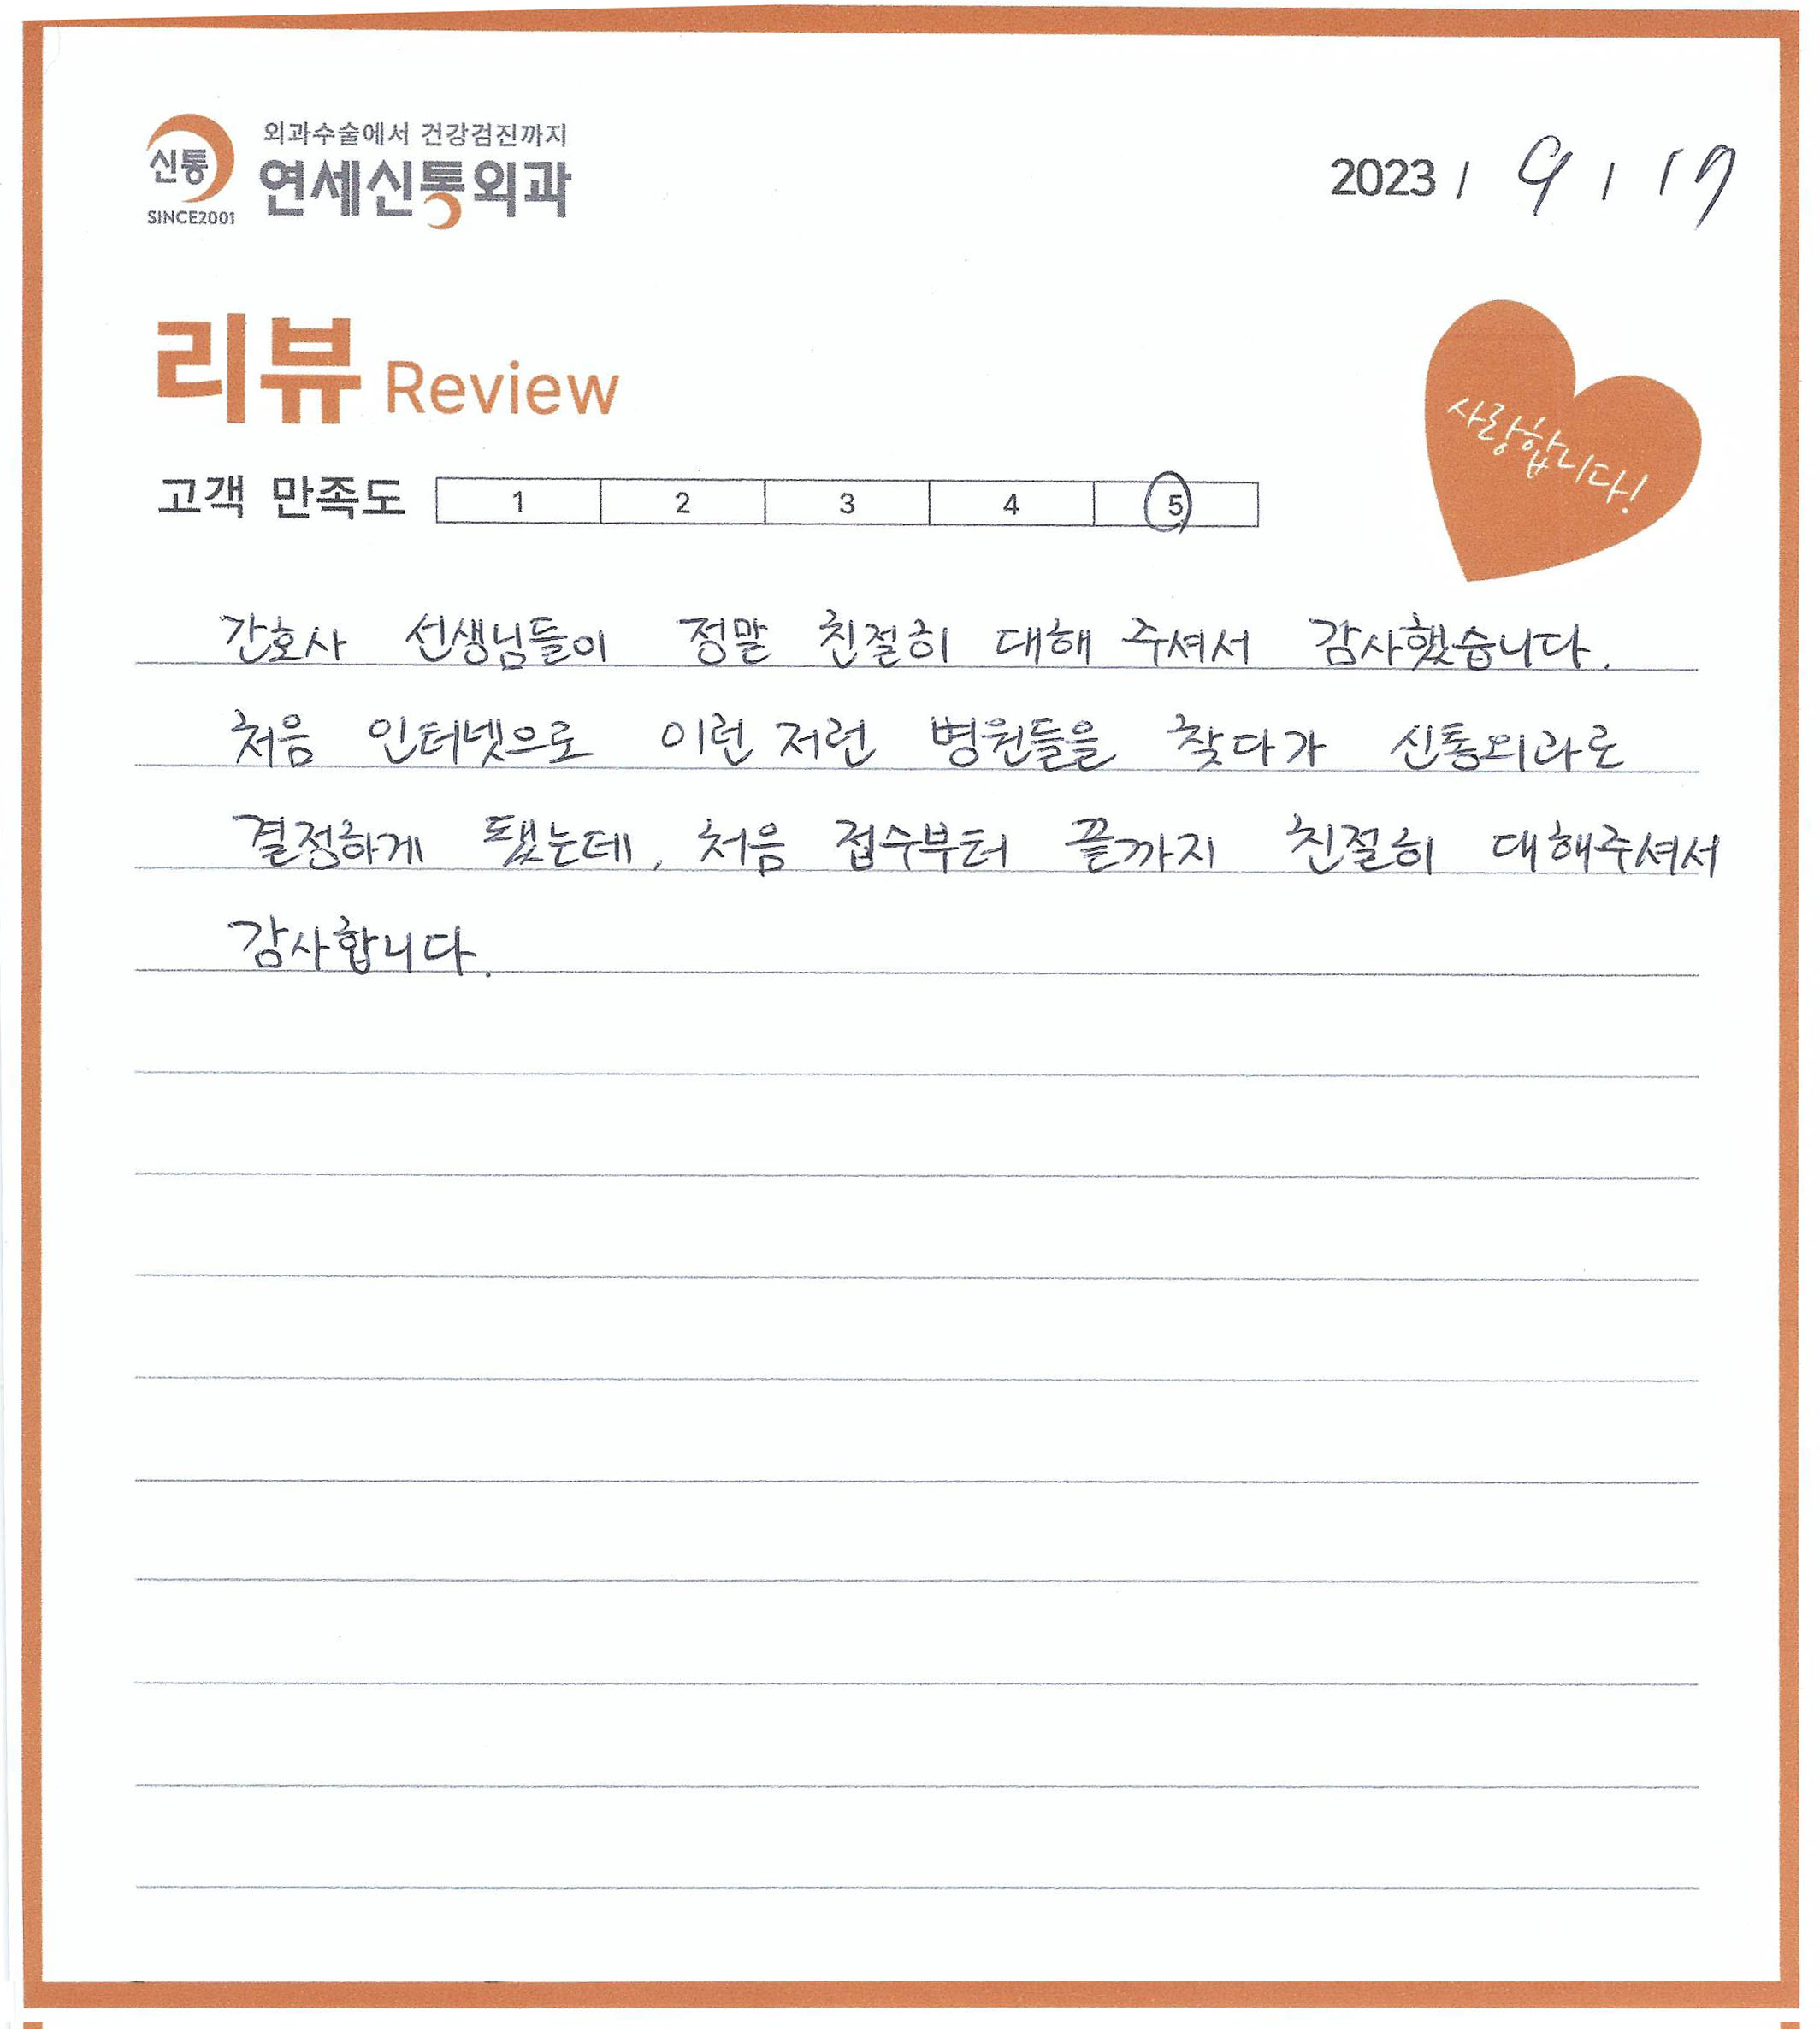 신통
SINCE2001
외과수술에서 건강검진까지
연세신통외과
2023 / 9 / 17
리뷰 Review
사랑합니다!
고객 만족도 1 2 3 4 5
간호사 선생님들이 정말 친절히 대해 주셔서 감사했습니다.
처음 인터넷으로 이런 저런 병원들을 찾다가 신통외과로
결정하게 됐는데, 처음 접수부터 끝까지 친절히 대해주셔서
감사합니다.